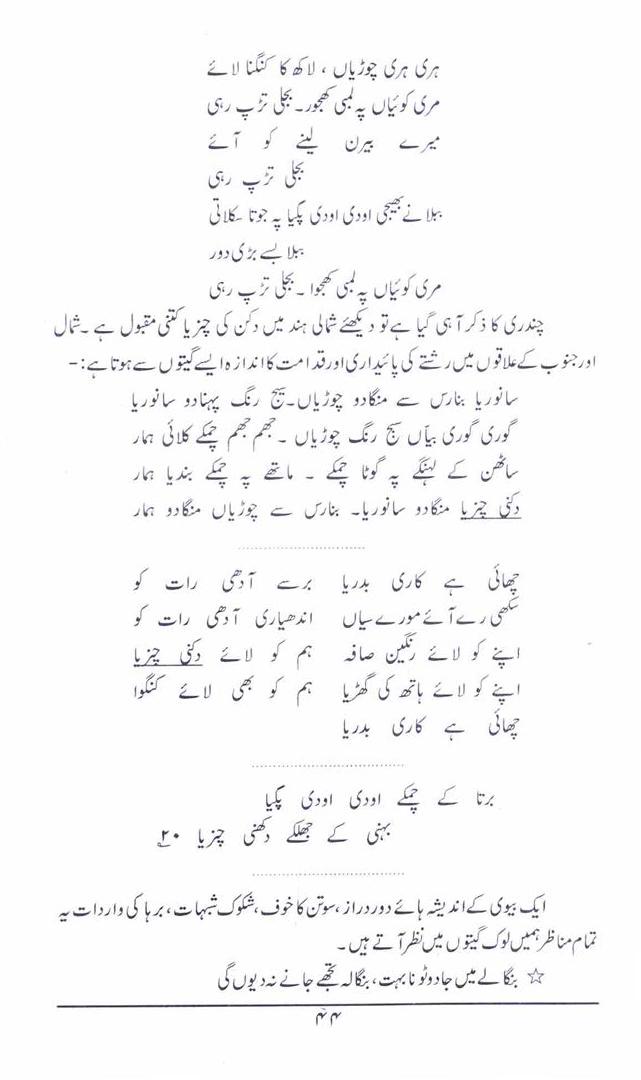 ہری ہری چوڑیاں ، لاکھ کا کنگنا لائے
مری کوئیاں پہ لمبی کھجور۔ بجلی تڑپ رہی
میرے بیرن لینے کو آئے
بجلی تڑپ رہی
ببلا نے بھیجی اودی اودی پگیا پہ جوتا سکلاتی
ببلا بسے بڑی دور
مری کوئیاں پہ لمبی کھجوا ۔ بجلی تڑپ رہی
چندری کا ذکر آ ہی گیا ہے تو دیکھئے شمالی ہند میں دکن کی چنریا کتنی مقبول ہے ۔ شمال
اور جنوب کے علاقوں میں رشتے کی پائیداری اور قدامت کا اندازہ ایسے گیتوں سے ہوتا ہے :-
سانوریا بنارس سے منگا دو چوڑیاں۔ سج رنگ پہنا دو سانوریا
گوری گوری بیاّں سج رنگ چوڑیاں ۔ جھم جھم چمکے کلائی ہمار
ساٹھن کے لہنگے پہ گوٹا چمکے ۔ ماتھے پہ چمکے بندیا ہمار
دکنی چنریا منگا دو سانوریا۔ بنارس سے چوڑیاں منگا دو ہمار
چھائی ہے کاری بدریا برسے آدھی رات کو
سکھی رے آئے مورے سیاں اندھیاری آدھی رات کو
اپنے کو لائے رنگین صافہ ہم کو لائے دکنی چنریا
اپنے کو لائے ہاتھ کی گھڑیا ہم کو بھی لائے کنگوا
چھائی ہے کاری بدریا
برتا کے چمکے اودی اودی پگیا
بہنی کے جھلکے دکھنی چنریا ۲۰
ایک بیوی کے اندیشہ ہائے دور دراز ، سوتن کا خوف ، شکوک شبہات ، برہا کی واردات یہ
تمام مناظر ہمیں لوک گیتوں میں نظر آتے ہیں ۔
☆ بنگالے میں جادو ٹونا بہت ، بنگالہ تجھے جانے نہ دیوں گی
۴۴